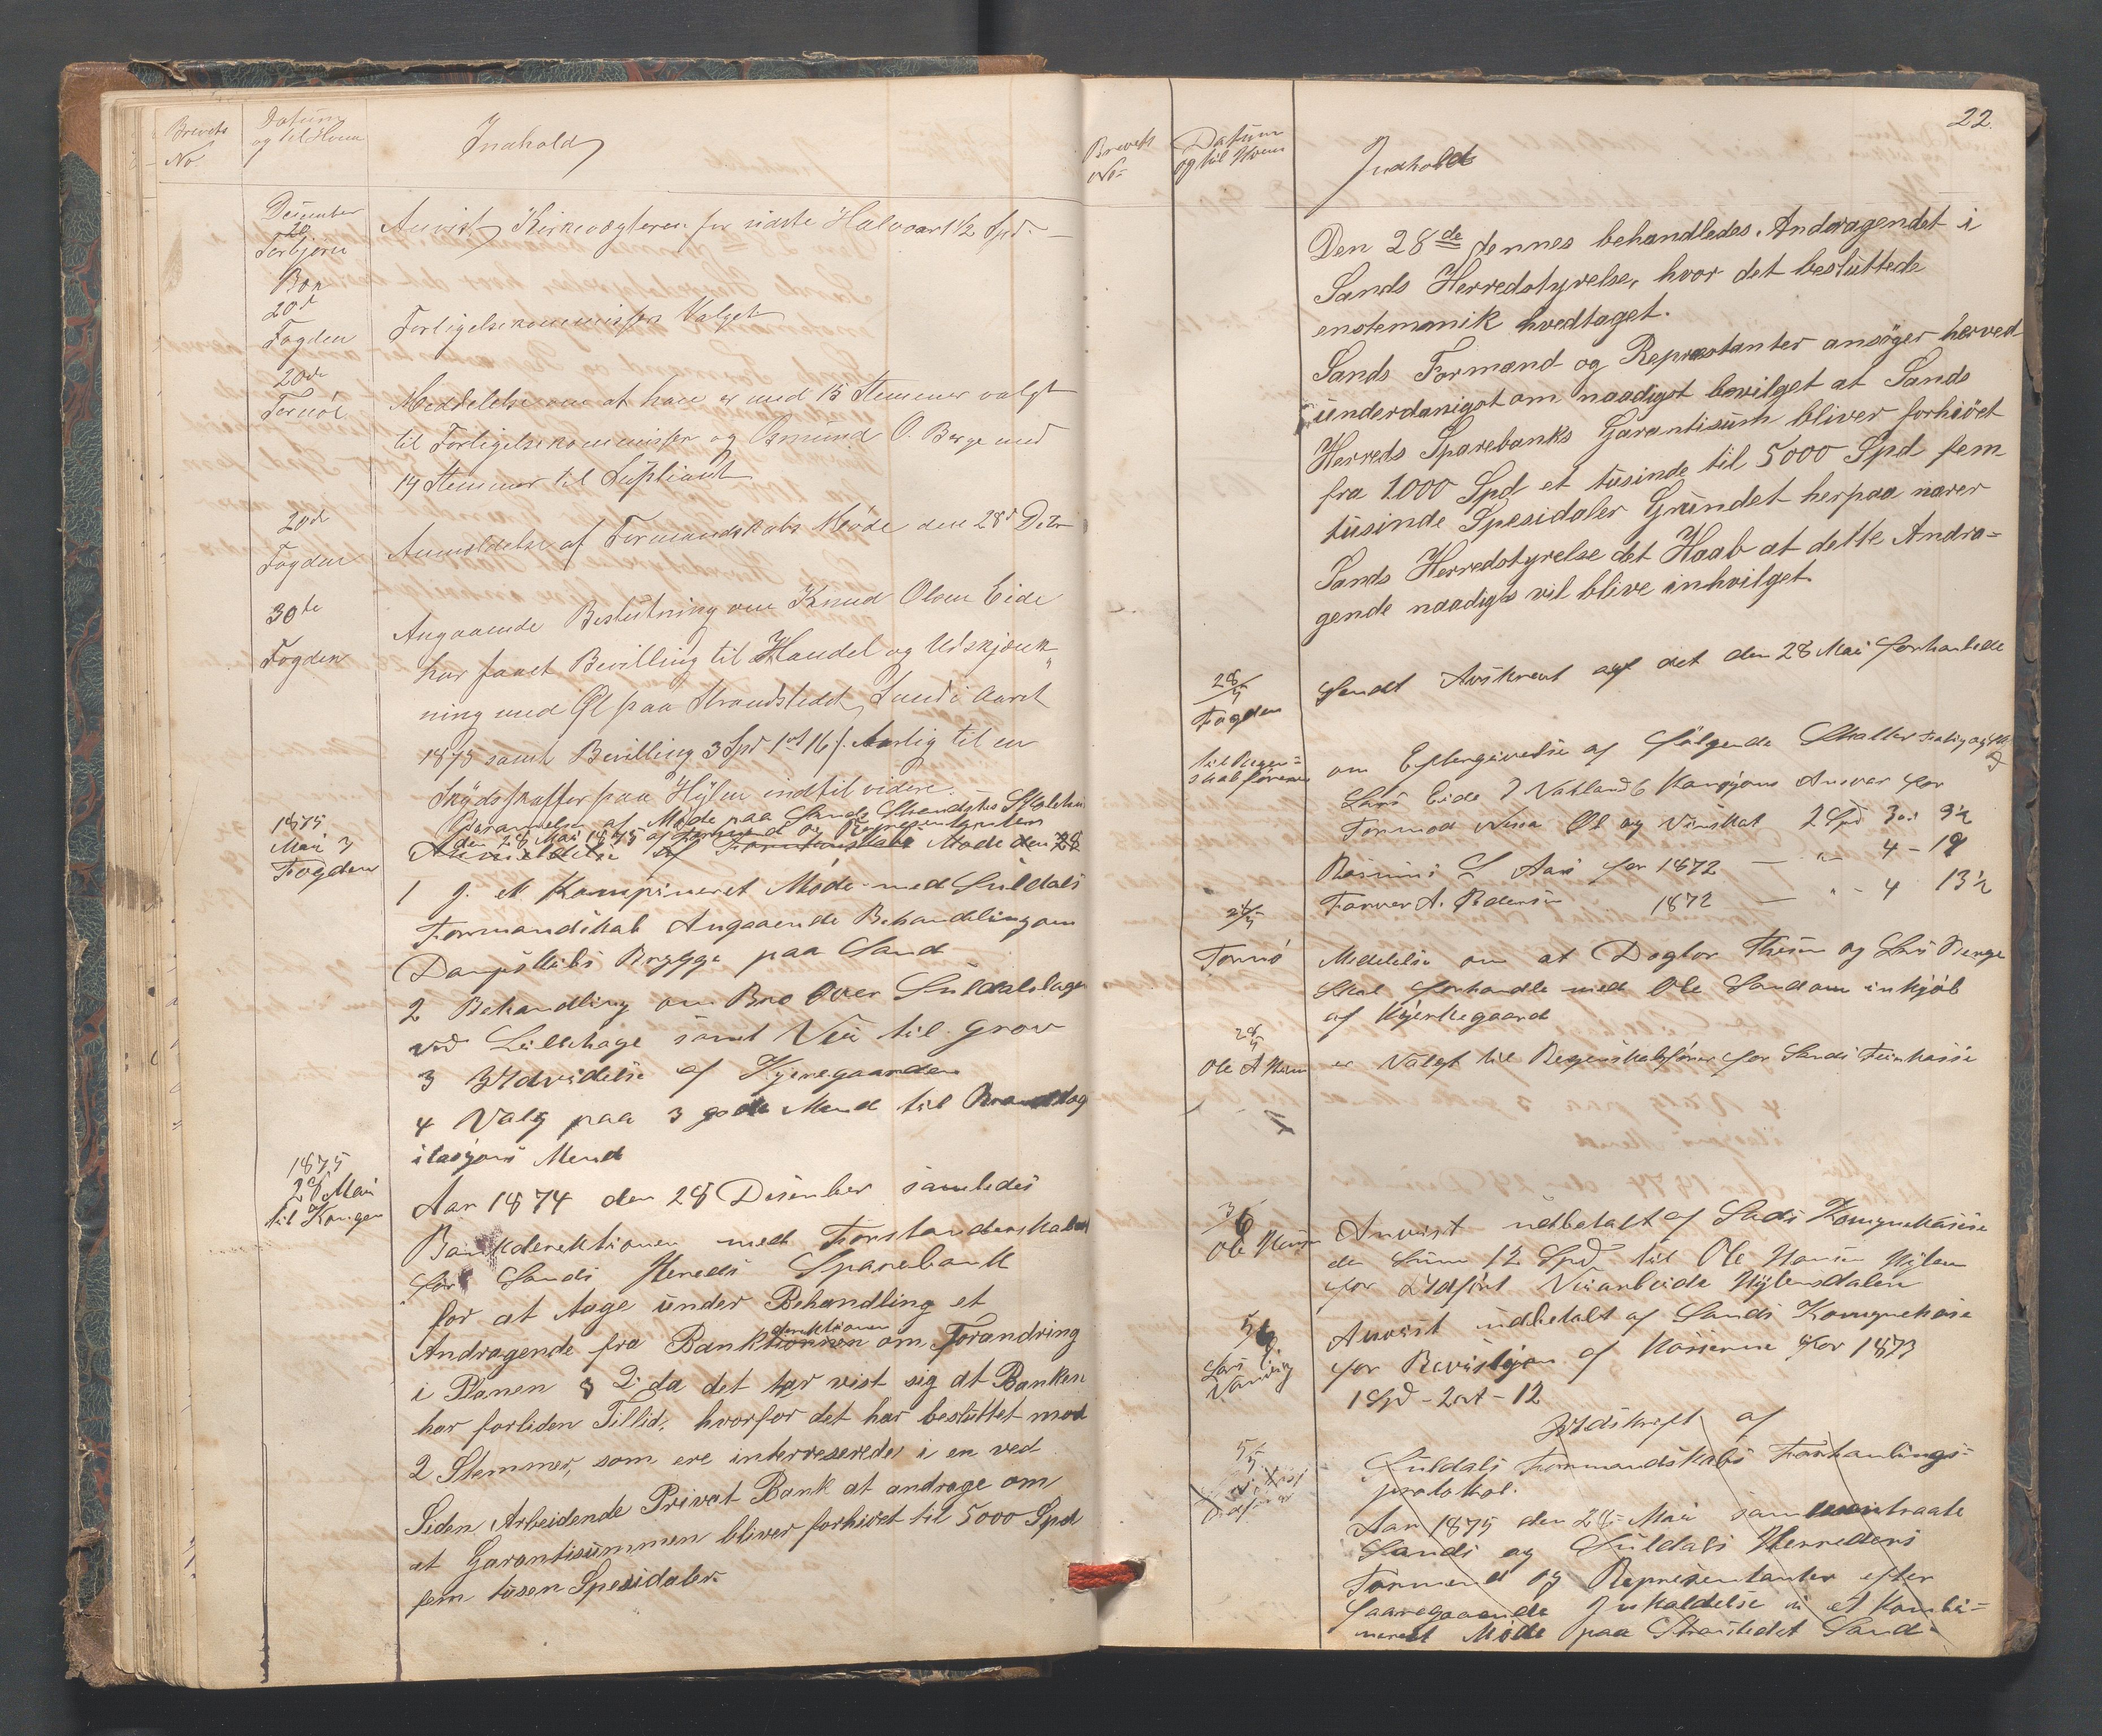 Brevets
No
Datum
og til Hvem
Indhold
December
20
Torbjørn
Boe
Anvist Kirkevægteren for sidste Halvaar 1 1/2 Spd. —
20de
Fogden
Forligelseskommissær Valget
20de
Meddelelse om at han er med 15 Stemmer valgt
til Forligelseskommissær og Osmund O. Berge med
14 Stemmer til Supliant
20de
Fogden
Anmeldelse af Formandskabs Møde den 28de Decbr
30te
Fogden
Angaaende Beslutning om Knud Olsen Eide
har faaet Bevilling til Handel og Udskjænk
ning med Øl paa Strandstedet Sand i Aaret
1875 samt Bevilling 3 Spd 1 ort 16 s. Aarlig til en
Skydsskaffer paa Hylen indtil videre.
1875
Mai 3
Fogden
Berammelse af Møde paa Sands Strandsted
den 28 Mai 1875 af Formend og Representanter
Anmeldelse af Formandskabs Møde den 28
1 J. et Kompineret Møde med Suldals
Formandskab Angaaende Behandling om
Dampskibs Brygge paa Sand
2 Behandling om Bro Over Suldalslagen
ved Lillehage samt Vei til Grov
3 Udvidelse af Kjerkegaarden
4 Valg paa 3 gode Mend til Brand tag
itasjons Mend
1875
28 Mai
til Kongen
Aar 1874 den 28 Desember samledes
Bankderektionen med Forstanderskabet
for Sands Hereds Sparebank
for at tage under Behandling et
derektionen
Andragende fra Banktionnen om Forandring
i Planen § 2. da det har vist sig at Banken
har forliden Tillid, hvorfor det har besluttet mod
2 Stemmer, som ere interreserede i en ved
Siden Arbeidende Privat Bank at andrage om
at Garantisummen bliver forhiøet til 5000 Spd
fem tusen Spesidaler.
22.
Brevets
No
Datum
og til Hvem
Indhold
Den 28de dennes behandledes Andragendet i
Sands Herredstyrelse, hvor det besluttede
enstemmik hvedtaget.
Sands Formand og Represtanter ansøger herved
underdanigst om naadigst bevilget at Sands
Herreds Sparebanks Garantisum bliver forhiöet
fra 1000 Spd et tusinde til 5000 Spd fem
tusinde Spesidaler Grundet herpaa narer
Sands Herredstyrelse det Haab at dette Andra=
gende naadigs vil blive inhvilget.
28/5
Fogden
Sendt Avskrevt af det den 28 Mai forhanlede
til Regen=
skabsføreren
om Eftergivelse af følgende Skatter
Lars Eide Vatland Kausjons Ansvar for
Tormod Øl og Vinskat 2 Spd 3 ort 9 1/2
Rasmus S Aas for 1872 — " — 4 - 19
Farver A. Pedersen 1872 — " - 4 13 1/2
Tornø
Medelelse om at Dogtor Thesen og Lars Berge
skal forhandle med Ole Sand om inkjøb
af Kjerkegaard
28/5
er Valgt til Regenskabsfører for Sands Feierkasse
3/6
Ole Hansen
Anvist udbetalt af Sads Komynekasse
den Sum 12 Spd til Ole Hansen Hylen
for Udført Veiarbeide Hylensdalen
5/6
Lars
Anvist udbetalt af Sands Komynekasse
for Revisjon af Kasserne for 1873
1 Spd - 2 ort - 12
5/5
Udskrift af
Suldals Formandskabs Forhanlings-
protokol.
Aar 1875 den 28 Mai sammentraate
Sands og Suldals Herreders
Formend og Representanter efter
faaregaaende Inkaldelse i et kombi=
neret Møde paa Stranstedet Sand